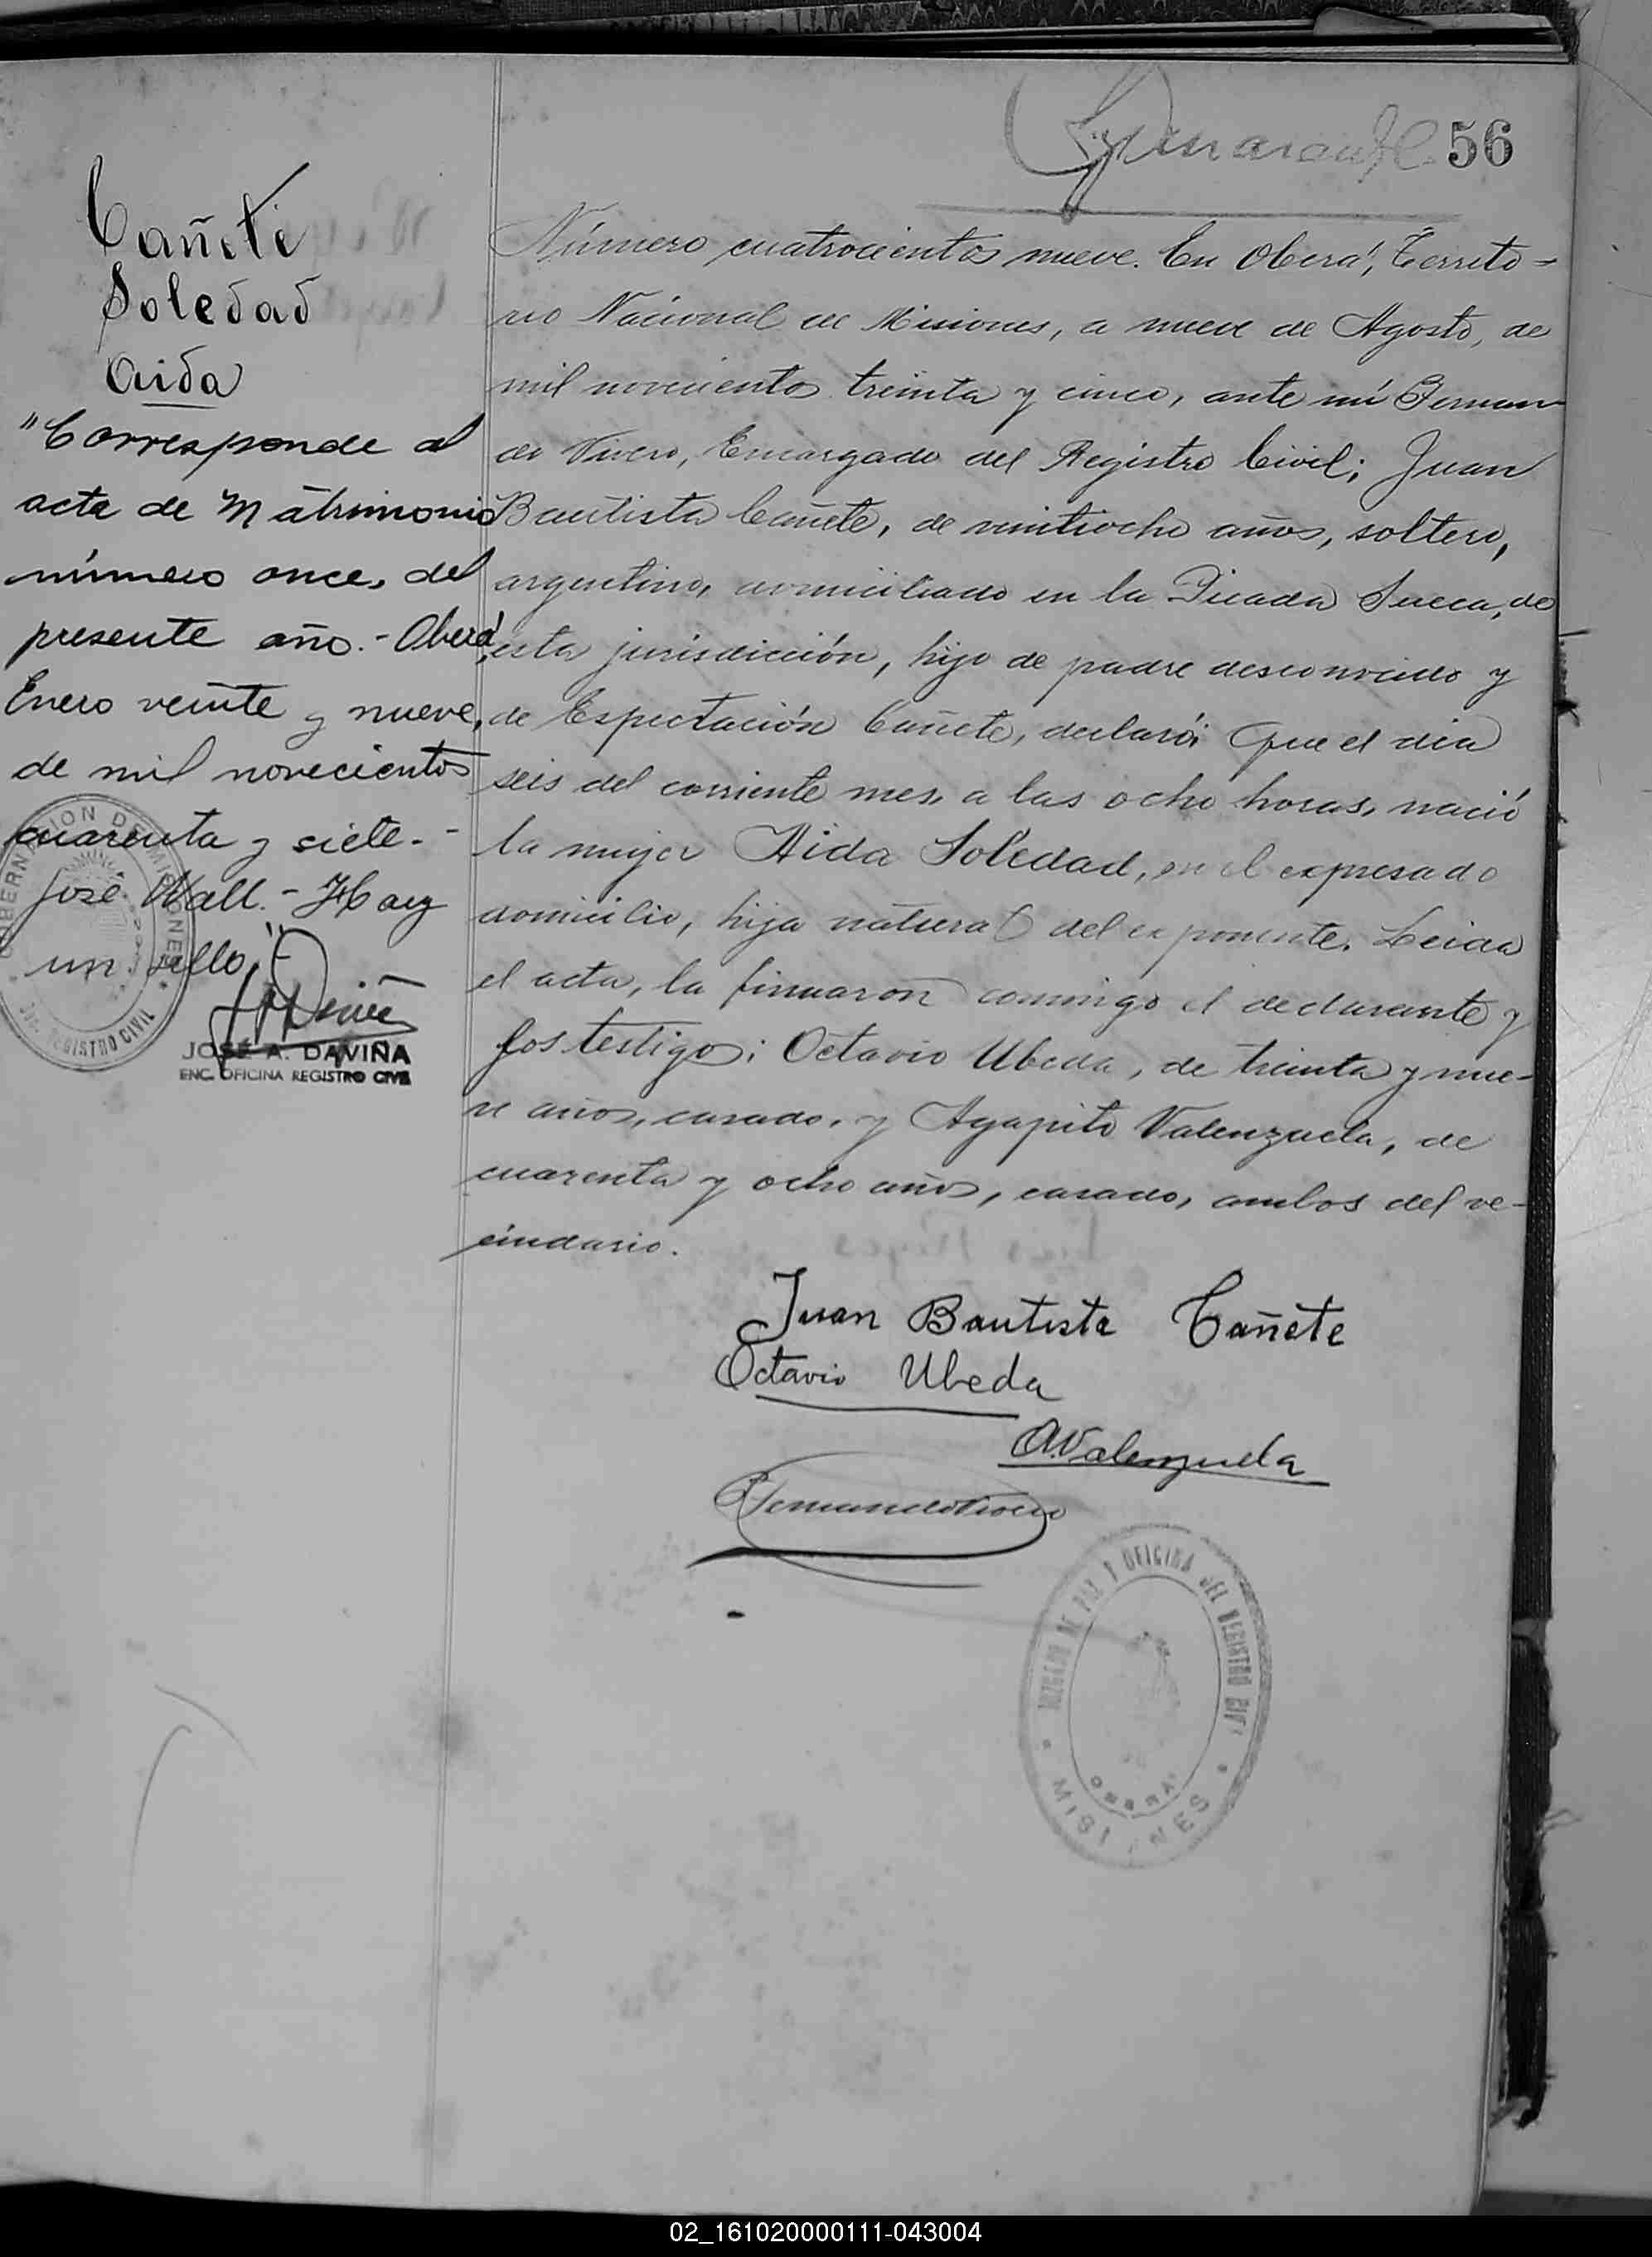 56
Cañete
Soledad
Aida
"Corresponde al
acta de Matrimonio
número once, del
presente año.- Oberá,
Enero veinte y nueve,
de mil novecientos
cuarenta y siete.-
José Wall.- Hay
un sello"
JOSÉ A. DAVIÑA
ENC. OFICINA REGISTRO CIVIL
REGISTRO CIVIL
Número cuatrocientos nueve. En Oberá, Territo-
rio Nacional de Misiones, a nueve de Agosto, de
mil novecientos treinta y cinco, ante mí Fernan-
do Vivero, Encargado del Registro Civil; Juan
Bautista Cañete, de veintiocho años, soltero,
argentino, domiciliado en la Picada Sueca, de
esta jurisdicción, hijo de padre desconocido y
de Espectación Cañete, declaró: Que el dia
seis del corriente mes, a las ocho horas, nació
la mujer Aida Soledad, en el expresado
domicilio, hija natural del exponente. Leida
el acta, la firmaron conmigo el declarante y
los testigos: Octavio Ubeda, de treinta y nue-
ve años, casado, y Agapito Valenzuela, de
cuarenta y ocho años, casado, ambos del ve-
cindario.
Juan Bautista Cañete
Octavio Ubeda
A. Valenzuela
Fernando Vivero
JUZGADO DE PAZ Y OFICINA DEL REGISTRO CIVIL
OBERA
MISIONES
02_161020000111-043004